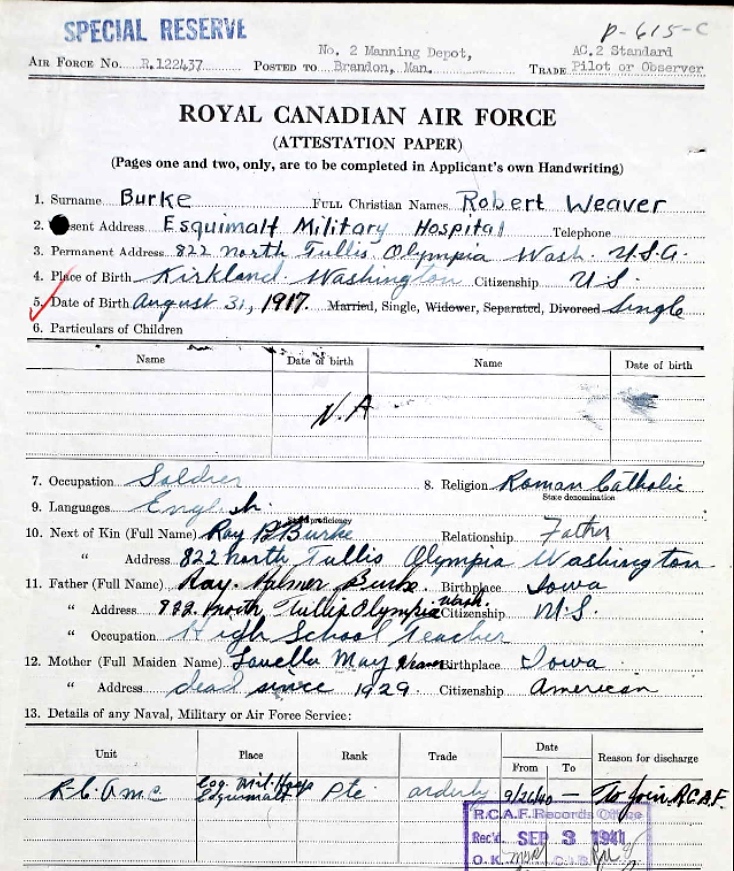 SPECIAL RESERVE
P-615-C
AIR FORCE No. R.122437 POSTED TO No. 2 Manning Depot, Brandon, Man. TRADE AC.2 Standard Pilot or Observer
ROYAL CANADIAN AIR FORCE
(ATTESTATION PAPER)
(Pages one and two, only, are to be completed in Applicant's own Handwriting)
1. Surname Burke FULL Christian Names Robert Weaver
2. sent Address Esquimalt Military Hospital Telephone
3. Permanent Address 822 north Tullis Olympia Wash. U.S.A.
4. Place of Birth Kirkland Washington Citizenship U.S.
5. Date of Birth August 31, 1917. Married, Single, Widower, Separated, Divorced Single
6. Particulars of Children
Name Date of birth Name Date of birth
N.A
7. Occupation Soldier 8. Religion Roman Catholic
State denomination
9. Languages English
State proficiency
10. Next of Kin (Full Name) Ray P Burke Relationship Father
" Address 822 north Tullis Olympia Washington
11. Father (Full Name) Ray. Palmer Burke Birthplace Iowa
" Address 822 north Tullis Olympia Wash. Citizenship U.S.
" Occupation High School Teacher
12. Mother (Full Maiden Name) Louella May Birthplace Iowa
" Address dead since 1929 Citizenship American
13. Details of any Naval, Military or Air Force Service:
Unit Place Rank Trade Date From To Reason for discharge
R.C.A.M.C Esq. Mil. Hosp Esquimalt Pte. orderly 9/26/40 — To Join R.C.A.F.
R.C.A.F. Records Office
Rec'd. SEP 3 1941
O.K.